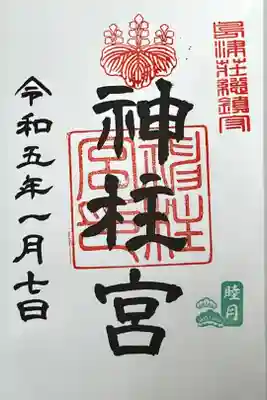 島津荘総鎮守
神柱宮
令和五年一月七日
睦月